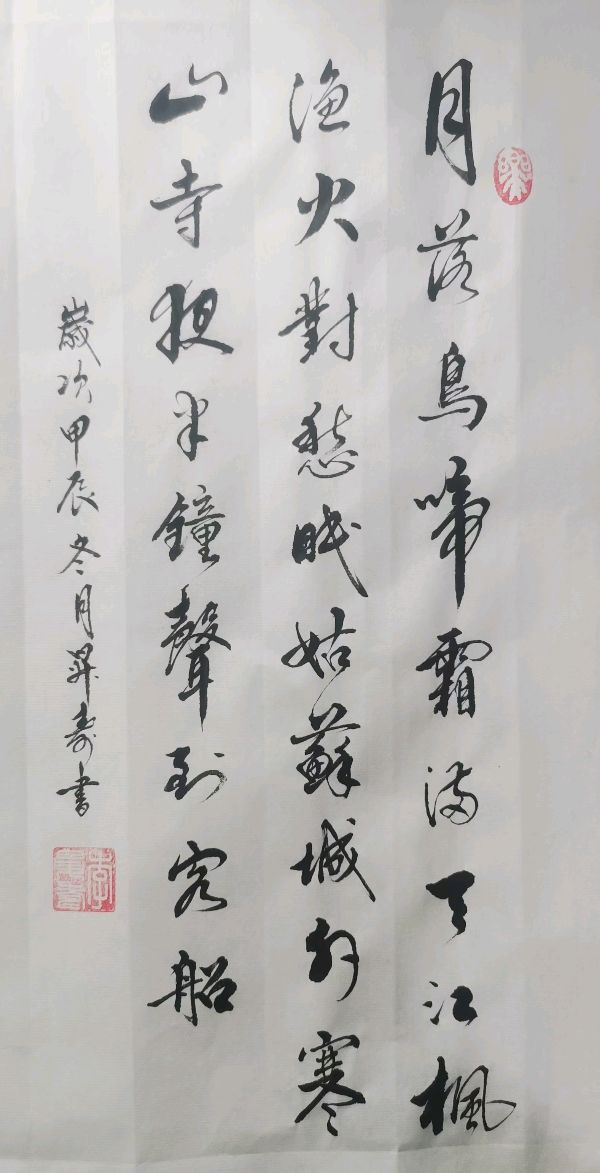 月落烏啼霜滿天江楓
漁火對愁眠姑蘇城外寒
山寺夜半鐘聲到客船
歲次甲辰冬月昇壽書